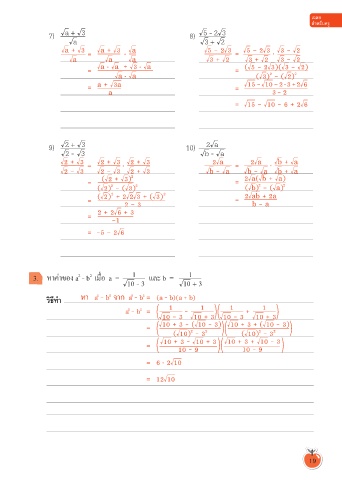 เฉลย
สำหรับครู
7) (√a + √3)/√a
(√a + √3)/√a = (√a + √3)/√a · √a/√a
= (√a · √a + √3 · √a)/(√a · √a)
= (a + √3a)/a
8) (√5 - 2√3)/(√3 + √2)
(√5 - 2√3)/(√3 + √2) = (√5 - 2√3)/(√3 + √2) · (√3 - √2)/(√3 - √2)
= (√5 - 2√3)(√3 - √2)/((√3)² - (√2)²)
= (√15 - √10 - 2·3 + 2√6)/(3 - 2)
= √15 - √10 - 6 + 2√6
9) (√2 + √3)/(√2 - √3)
(√2 + √3)/(√2 - √3) = (√2 + √3)/(√2 - √3) · (√2 + √3)/(√2 + √3)
= (√2 + √3)²/((√2)² - (√3)²)
= ((√2)² + 2√2√3 + (√3)²)/(2 - 3)
= (2 + 2√6 + 3)/-1
= -5 - 2√6
10) 2√a/(√b - √a)
2√a/(√b - √a) = 2√a/(√b - √a) · (√b + √a)/(√b + √a)
= 2√a(√b + √a)/((√b)² - (√a)²)
= (2√ab + 2a)/(b - a)
3. หาค่าของ a² - b² เมื่อ a = 1/(√10 - 3) และ b = 1/(√10 + 3)
วิธีทำ หา a² - b² จาก a² - b² = (a - b)(a + b)
a² - b² = (1/(√10 - 3) - 1/(√10 + 3))(1/(√10 - 3) + 1/(√10 + 3))
= ((√10 + 3 - (√10 - 3))/((√10)² - 3²))((√10 + 3 + (√10 - 3))/((√10)² - 3²))
= ((√10 + 3 - √10 + 3)/(10 - 9))((√10 + 3 + √10 - 3)/(10 - 9))
= 6 · 2√10
= 12√10
19